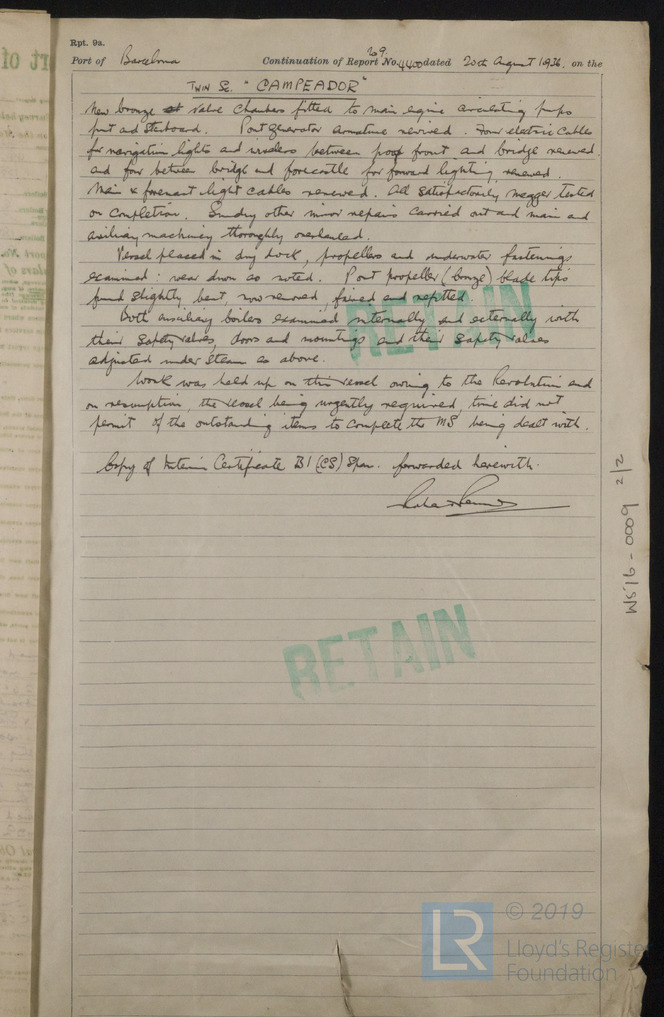 Rpt. 9a.
Port of Barcelona Continuation of Report No. 4400 dated 20th August 1936, on the
69.
TWIN SC. "CAMPEADOR"
New bronze valve chambers fitted to main engine circulating pumps
port and starboard. Port generator armature rewired. Four electric cables
for navigation lights and between poop front and bridge renewed.
and four between bridge and forecastle for forward lighting renewed.
Main & foremast light cables renewed. All satisfactorily megger tested
on completion. Sundry other minor repairs carried out and main and
auxiliary machinery thoroughly overhauled.
Vessel placed in dry dock, propellers and underwater fastenings
examined: wear down as noted. Port propeller (bronze) blade tips
found slightly bent, now removed, faired and refitted.
Both auxiliary boilers examined internally and externally with
their safety valves, doors and mountings and their safety valves
adjusted under steam as above.
Work was held up on this vessel owing to the Revolution and
on resumption, the vessel being urgently required, time did not
permit of the outstanding items to complete the MS being dealt with.
Copy of Interim Certificate B1 (CS) Span. forwarded herewith.
RETAIN
RETAIN
WS16-0009 2/2
LR
© 2019
Lloyd's Register
Foundation